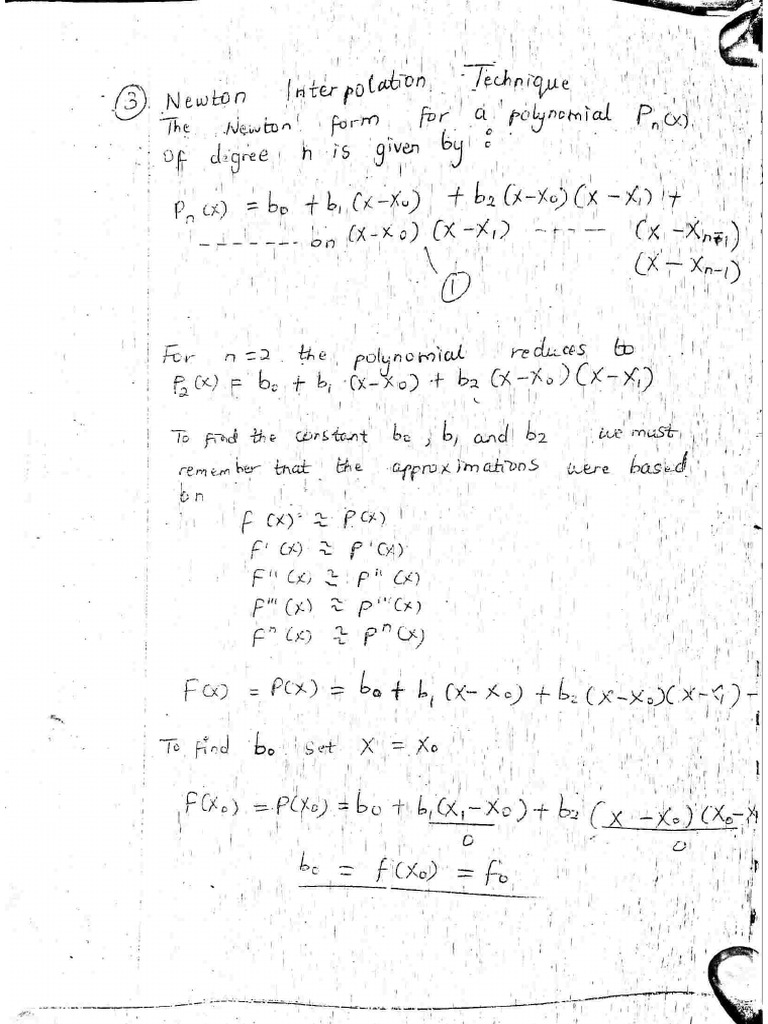 ③ Newton Interpolation Technique
The Newton form for a polynomial Pn(x)
of degree n is given by :
Pn(x) = b0 + b1 (x-x0) + b2 (x-x0)(x-x1) +
-------- bn (x-x0)(x-x1) ----- (x-xn-1)
(x-xn-1)
①
For n=2 the polynomial reduces to
P2(x) = b0 + b1 (x-x0) + b2 (x-x0)(x-x1)
To find the constant b0, b1 and b2 we must
remember that the approximations were based
on
f(x) ≃ P(x)
f'(x) ≃ P'(x)
f''(x) ≃ P''(x)
f'''(x) ≃ P'''(x)
fⁿ(x) ≃ Pⁿ(x)
F(x) = P(x) = b0 + b1 (x-x0) + b2 (x-x0)(x-x1) -
To find b0 set x = x0
F(x0) = P(x0) = b0 + b1(x1-x0) + b2 (x-x0)(x0-x
0 0
b0 = f(x0) = f0